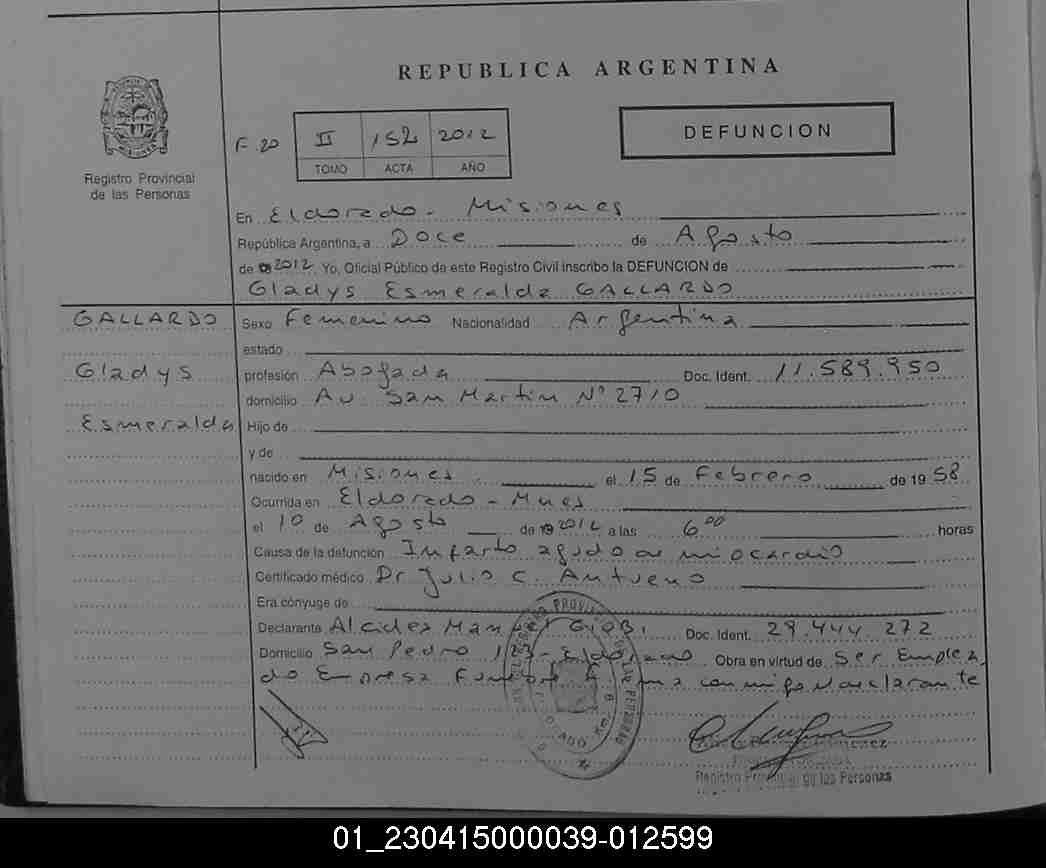 REPUBLICA ARGENTINA
Registro Provincial
de las Personas
F. 20
II 152 2012
TOMO ACTA AÑO
DEFUNCION
En Eldorado - Misiones
República Argentina, a Doce de Agosto
de 2012 Yo, Oficial Público de este Registro Civil inscribo la DEFUNCION de
Gladys Esmeralda GALLARDO
GALLARDO
Gladys
Esmeralda
Sexo Femenino Nacionalidad Argentina
estado
profesión Abogada Doc. Ident. 11.589.950
domicilio Av. San Martin N° 2710
Hijo de
y de
nacido en Misiones el 15 de Febrero de 1958
Ocurrida en Eldorado - Mnes
el 10 de Agosto de 2012 a las 6 00 horas
Causa de la defunción Infarto agudo de miocardio
Certificado médico Dr Julio C. Antueno
Era cónyuge de
Declarante Alcides Doc. Ident. 29.444.272
Domicilio San Pedro Eldorado Obra en virtud de Ser Emplea
do Empresa conmigo declarante
Registro Provincial de las Personas
01_230415000039-012599